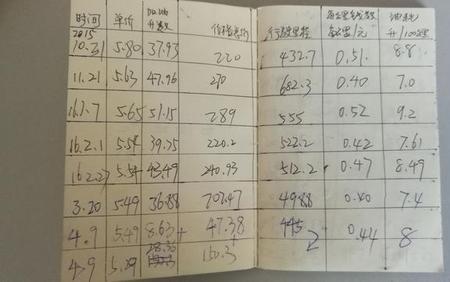 时间 单价 加油升数 价格 行驶里程 每公里 公里/元 油耗 升/100公里
2015
10.31 5.80 37.93 220 432.7 0.51 8.8
11.21 5.63 47.96 270 682.3 0.40 7.0
16.1.7 5.65 51.15 289 555 0.52 9.2
16.2.1 5.54 39.75 220.2 522.2 0.42 7.61
16.2.27 5.54 43.49 240.93 512.2 0.47 8.49
3.20 5.49 36.88 202.47 49.88 0.40 7.4
4.9 5.49 8.63 + 47.38 0.44 8
4.9 5.29 28.36 150.3